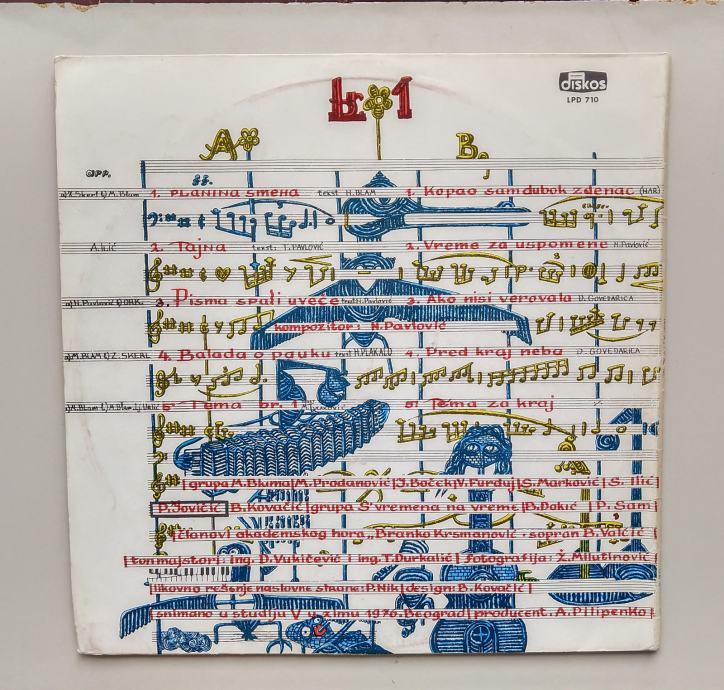 br. 1
diskos
LPD 710
A
B.
a) Z. Skerl b) M. Blam 1. PLANINA SMEHA tekst M. BLAM 1. Kopao sam dubok zdenac (NAR)
A. Ilić 2. Tajna tekst: T. PAVLOVIĆ 2. Vreme za uspomene N. Pavlović
3. Pisma spali uveče tekst N. Pavlović 3. Ako nisi verovala D. GOVEDARICA
kompozitor: N. Pavlović
a) M. BLAM b) Z. SKERL 4. Balada o pauku tekst H. PLAKALO 4. Pred kraj neba D. GOVEDARICA
5. Tema br. 1 5. Tema za kraj
|grupa M. Bluma|M. Prodanović|J. Boček|V. Furduj|S. Marković| S. Ilić|
P. Jovičić | B. Kovačić|grupa S vremena na vreme|B. Đokić | P. Sam|
|članovi akademskog hora „Branko Krsmanović" sopran B. Valčić|
|ton majstori: ing. D. Vukićević i ing. T. Durkalić| fotografija: Ž. Milutinović|
|likovno rešenje naslovne strane: P. Nik|design: B. Kovačić|
|snimano u studiju V u zimu 1976. Beograd|producent: A. Pilipenko|